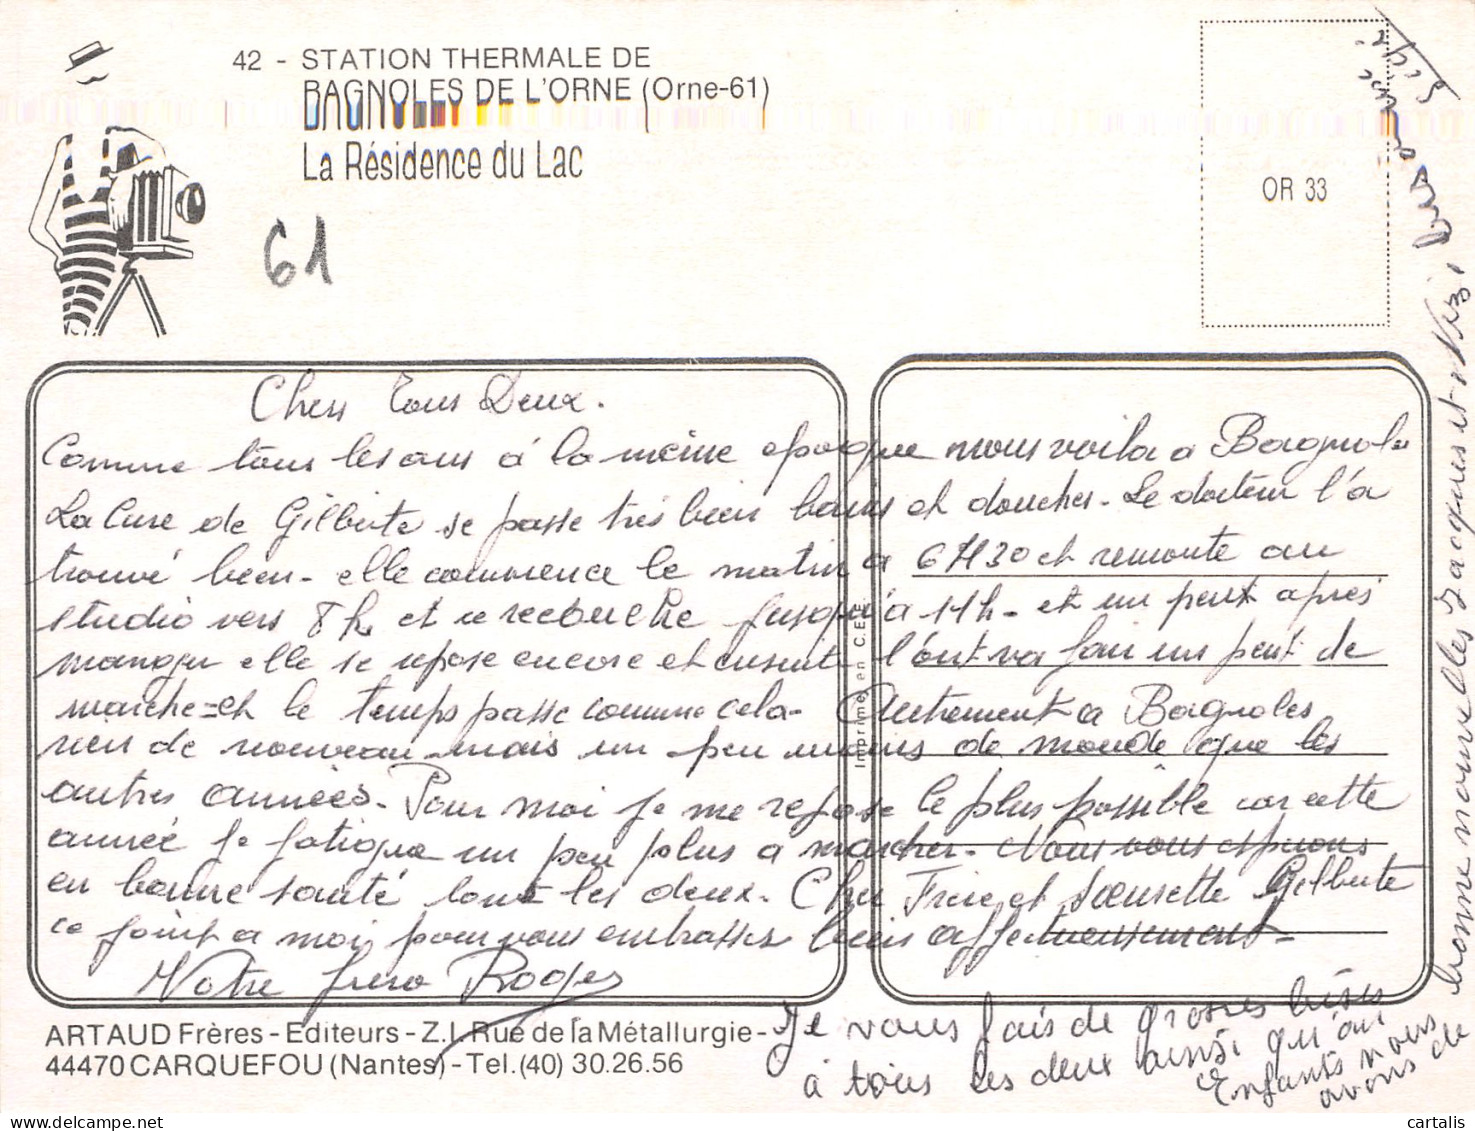 42 - STATION THERMALE DE
BAGNOLES DE L'ORNE (Orne-61)
La Résidence du Lac
OR 33
61
Chers Tous Deux.
Comme tous les ans à la même epoque nous voila a Bagnoles
La Cure de Gilberte se passe très bien bains et douches. Le docteur l'a
trouvé bien - elle commence le matin a 6H30 et remonte au
studio vers 8h et ce recouche jusqu'à 11h - et un peux après
manger elle se repose encore et ensuite l'ont va fair un peut de
marche = et le temps passe comme cela - Autrement a Bagnoles
rien de nouveau mais un peu moins de monde que les
autres années. Pour moi je me repose le plus possible car cette
année je fatigue un peu plus a marcher. Nous vous esperons
en bonne santé tout les deux. Cher Frère et Soeurette Gilberte
ce joint a moi pour vous embrasser biens affectueusement -
Votre frère Roger
Je vous fais de grosses bises
à tous les deux ainsi qu'au
Enfants nous
avons de
bonne nouvelles Jacques et
bises
Imprimé en C.E.E.
ARTAUD Frères - Editeurs - Z.I. Rue de la Métallurgie -
44470 CARQUEFOU (Nantes) - Tel. (40) 30.26.56
cartalis